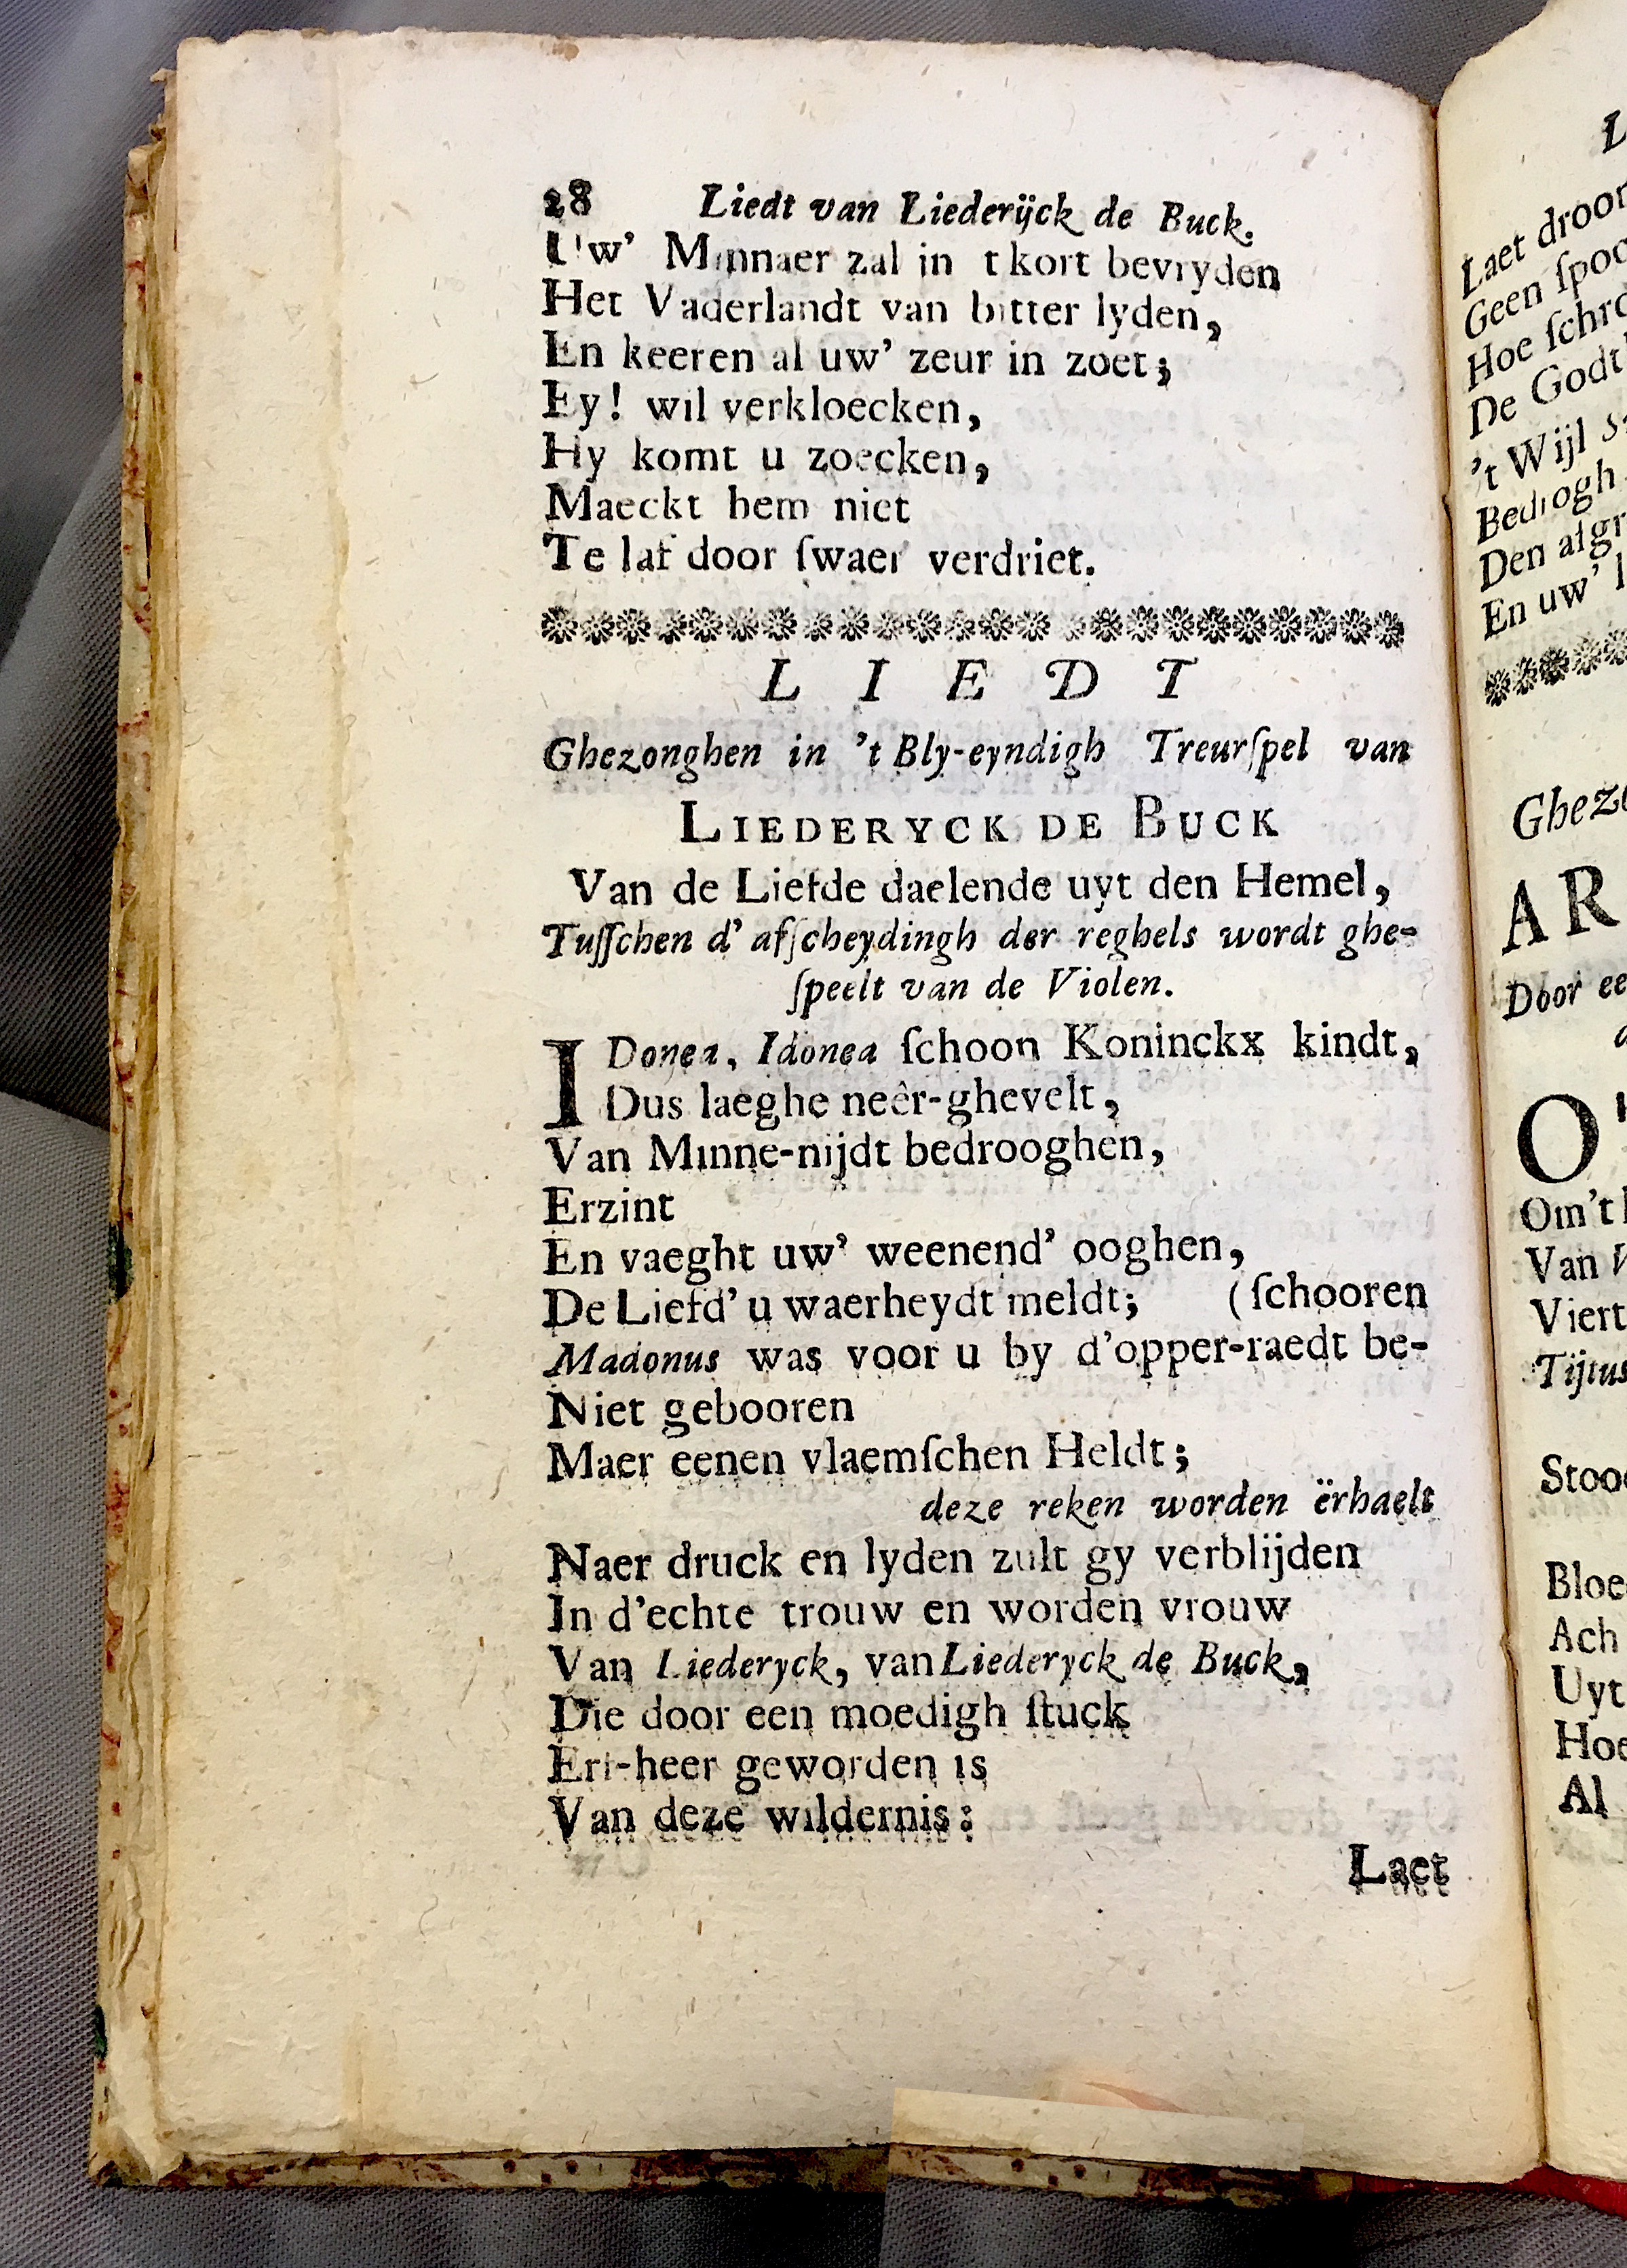 28 Liedt van Liederÿck de Buck.
Uw' Minnaer zal in t kort bevryden
Het Vaderlandt van bitter lyden,
En keeren al uw' zeur in zoet;
Ey! wil verkloecken,
Hy komt u zoecken,
Maeckt hem niet
Te laf door ſwaer verdriet.
L I E D T
Ghezonghen in 't Bly-eyndigh Treurſpel van
LIEDERYCK DE BUCK
Van de Liefde daelende uyt den Hemel,
Tuſſchen d' afſcheydingh der reghels wordt ghe-
ſpeelt van de Violen.
IDonea, Idonea ſchoon Koninckx kindt,
Dus laeghe neêr-ghevelt,
Van Minne-nijdt bedrooghen,
Erzint
En vaeght uw' weenend' ooghen,
De Liefd' u waerheydt meldt; (ſchooren
Madonus was voor u by d'opper-raedt be-
Niet gebooren
Maer eenen vlaemſchen Heldt;
deze reken worden ërhaelt
Naer druck en lyden zult gy verblijden
In d'echte trouw en worden vrouw
Van Liederyck, van Liederyck de Buck,
Die door een moedigh ſtuck
Erf-heer geworden is
Van deze wildernis:
Laet
Laet
Geen
Hoe
De
't Wijl
Bedrogh
Den
En uw'
Door
Om't
Van
Viert
Ach
Uyt
Al